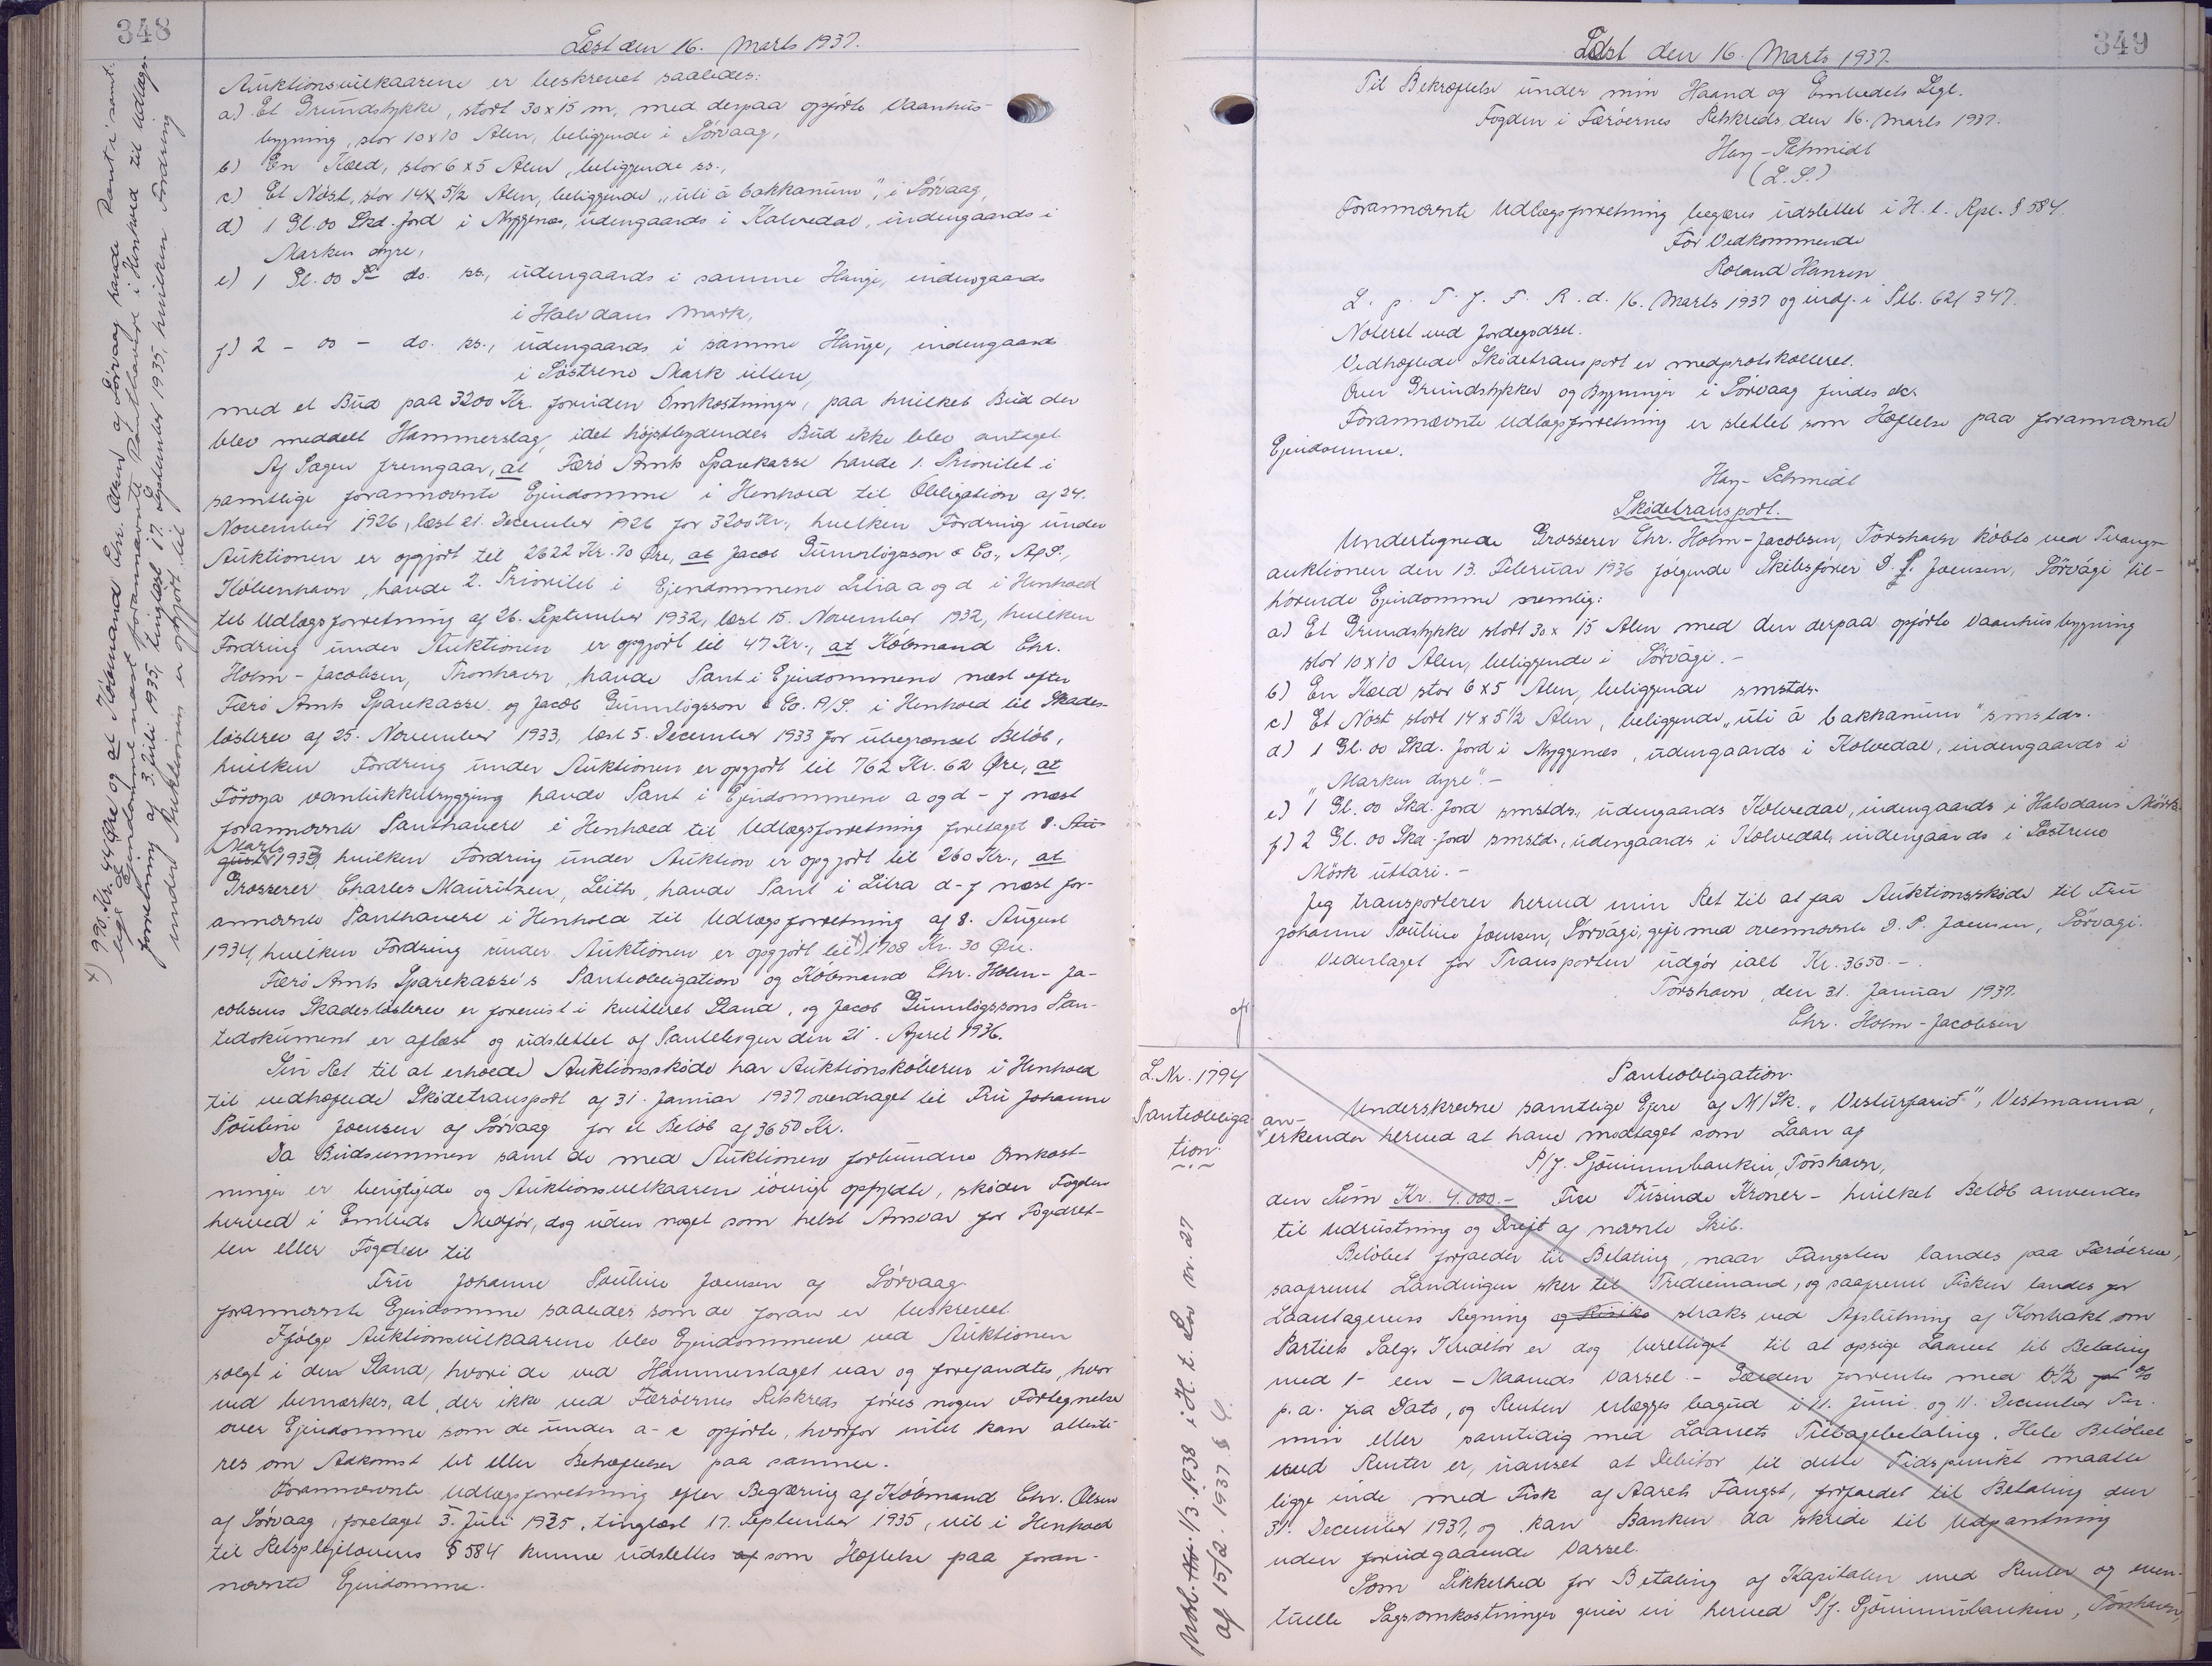 348
Læst den 16. Marts 1937.
Auktionsvilkaarene er beskrevet saaledes:
a) Et Grundstykke, stort 30 x 15 m, med derpaa opførte Vaanhus-
bygning, stor 10 x 10 Alen, beliggende i Sörvaag,
b) En Kæld, stor 6 x 5 Alen, beliggende ss.,
c) Et Nöst, stor 14 x 5 1/2 Alen, beliggende "úti á bakkanum", i Sörvaag,
d) 1 Gl. 00 Skd. Jord i Myggenæs, udengaards i Kalvedal, indengaards i
Marken dyre,
e) 1 Gl. 00 Sk do. ss., udengaards i samme Hauge, indengaards
i Halvdans Mark,
f) 2 - 00 - do. ss., udengaards i samme Hauge, indengaards
i Söstrene Mark uttere,
med et Bud paa 3200 Kr. foruden Omkostninger, paa hvilket Bud der
blev meddelt Hammerslag, idet højstbydendes Bud ikke blev antaget
Af Sagen fremgaar, at Færö Amts Sparekasse havde 1. Prioritet i
samtlige forannævnte Ejendomme i Henhold til Obligation af 24.
November 1926, læst 21. December 1926 for 3200 Kr., hvilken Fordring under
Auktionen er opgjort til 2622 Kr. 70 Øre, at Jacob Gunnlögsson & Co., A/S.,
København, havde 2. Prioritet i Ejendommene Litra a og d i Henhold
til Udlægsforretning af 26. September 1932, læst 15. November 1932, hvilken
Fordring under Auktionen er opgjort til 47 Kr., at Köbmand Chr.
Holm-Jacobsen, Thorshavn, havde Pant i Ejendommene næst efter
Færö Amts Sparekasse og Jacob Gunnlögsson & Co. A/S. i Henhold til Skades-
løsbrev af 25. November 1933, læst 5. December 1933 for ubegrænset Beløb,
hvilken Fordring under Auktionen er opgjort til 762 Kr. 62 Øre, at
Föroya vanlukkutrygging havde Pant i Ejendommene a og d - f næst
forannævnte Panthavere i Henhold til Udlægsforretning foretaget 8. Au-
Marts
gust 1935, hvilken Fordring under Auktion er opgjort til 260 Kr., at
Grosserer Charles Mauritzen, Leith, havde Pant i Litra d-f næst for-
annævnte Panthavere i Henhold til Udlægsforretning af 8. August
1934, hvilken Fordring under Auktionen er opgjort til +) 1708 Kr. 30 Øre.
Færö Amts Sparekasse's Panteobligation og Köbmand Chr. Holm-Ja-
cobsens Skadesløsbrev er forevist i kvitteret Stand, og Jacob Gunnlögssons Pan-
tedokument er aflæst og udslettet af Pantebogen den 21. April 1936.
Sin Ret til at erholde Auktionsskøde har Auktionskøberen i Henhold
til vedhæftede Skødetransport af 31. Januar 1937 overdraget til Fru Johanne
Pouline Joensen af Sörvaag for et Beløb af 3650 Kr.
Da Budsummen samt de med Auktionen forbundne Omkost-
ninger er berigtigede og Auktionsvilkaarene iøvrigt opfyldte, skøder Fogden
herved i Embeds Medfør, dog uden noget som helst Ansvar for Fogedret-
ten eller Fogden til
Fru Johanne Pouline Joensen af Sörvaag
forannævnte Ejendomme saaledes som de foran er beskrevet.
Ifølge Auktionsvilkaarene blev Ejendommene ved Auktionen
solgt i den Stand, hvori de ved Hammerslaget var og forefandtes, hvor
ved bemærkes, at der ikke ved Færöernes Retskreds føres nogen Fortegnelse
over Ejendomme som de under a-c opførte, hvorfor intet kan atteste
res om Adkomst til eller Behæftelser paa samme.
Forannævnte Udlægsforretning efter Begæring af Købmand Chr. Olsen
af Sörvaag, foretaget 3. Juli 1935, tinglæst 17. September 1935, vil i Henhold
til Retsplejelovens § 584 kunne udslettes af som Hæftelse paa foran-
nævnte Ejendomme.
+) 990 Kr. 44 Øre og at Købmand Chr. Olsen af Sörvaag havde Pant i samt-
lige Ejendomme næst forannævnte Panthavere i Henhold til Udlægs-
forretning af 3. Juli 1935, tinglæst 17. September 1935, hvilken Fordring
under Auktionen er opgjort til
349
Læst den 16. Marts 1937.
Til Bekræftelse under min Haand og Embedets Segl.
Fogden i Færöernes Retskreds, den 16. Marts 1937.
Hey-Schmidt
(L.S.)
Forannævnte Udlægsforretning begæres udslettet i H. t. Rpl. § 584.
For Vedkommende
Roland Hansen
L. p. T. f. F. R. d. 16. Marts 1937 og indf. i Ptb. 62/347.
Noteret ved Jordegodset.
Vedhæftede Skødetransport er medprotokolleret.
Over Grundstykker og Bygninger i Sörvaag findes ek.
Forannævnte Udlægsforretning er slettet som Hæftelse paa forannævnte
Ejendomme.
Hey-Schmidt
Skødetransport.
Undertegnede Grosserer Chr. Holm-Jacobsen, Tórshavn købte ved Tvangs-
auktionen den 13. Februar 1936 følgende Skibsfører D. P. Joensen, Sörvági til-
hørende Ejendomme nemlig:
a) Et Grundstykke stort 30 x 15 Alen med den derpaa opførte Vaanhusbygning
stor 10 x 10 Alen, beliggende i Sörvági. -
b) En Kæld stor 6 x 5 Alen, beliggende smstds.
c) Et Nöst stort 14 x 5 1/2 Alen, beliggende "úti á bakkanum" smstds.
d) 1 Gl. 00 Skd. Jord i Myggenæs, udengaards i Kolvedal, indengaards i
"Marken dyre". -
e) 1 Gl. 00 Skd. Jord smstds., udengaards Kolvedal, indengaards i Halvdans Mörk.
f) 2 Gl. 00 Skd. Jord smstds., udengaards i Kolvedal, indengaards i Söstrene
Mörk uttari. -
Jeg transporterer herved min Ret til at faa Auktionsskøde til Fru
Johanne Pouline Joensen, Sörvági, gift med ovennævnte D. P. Joensen, Sörvági.
Vederlaget for Transporten udgør ialt Kr. 3650. -
Tórshavn, den 31. Januar 1937.
Chr. Holm-Jacobsen
L.Nr. 1794
Panteobliga-
tion.
Panteobligation.
Underskrevne samtlige Ejere af M/Sk. "Vesturfarið", Vestmanna, an-
erkender herved at have modtaget som Laan af
P/f. Sjóvinnubankin, Tórshavn,
den Sum Kr. 4.000.- Fire Tusinde Kroner - hvilket Beløb anvendes
til Udrustning og Drift af nævnte Skib.
Beløbet forfalder til Betaling, naar Fangsten landes paa Færöerne,
saafremt Landingen sker til Trediemand, og saafremt Fisken landes for
Laantagerens Regning og Risiko straks ved Afslutning af Kontrakt om
Partiets Salg. Kreditor er dog berettiget til at opsige Laanet til Betaling
med 1- een - Maaneds Varsel. - Gælden forrentes med 6 1/2 %
p.a. fra Dato, og Renten erlægges bagud i 11. Juni og 11. December Ter-
min eller samtidig med Laanets Tilbagebetaling. Hele Beløbet
med Renter er, uanset at Debitor til dette Tidspunkt maatte
ligge inde med Fisk af Aarets Fangst, forfaldet til Betaling den
31. December 1937, og kan Banken da skride til Udpantning
uden forudgaaende Varsel.
Som Sikkerhed for Betaling af Kapitalen med Renter og even-
tuelle Sagsomkostninger giver vi herved P/f. Sjóvinnubankin, Tórshavn,
1/3. 1938 i H. t. Lov nr. 27
af 15/2. 1937 §